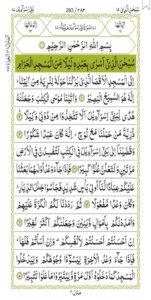 سُبْحٰنَ الَّذِيْٓ ١٥
283 / ٢٨٣
بَنِيْٓ اِسْرَآءِيْل ١٧
بِسْمِ اللّٰهِ الرَّحْمٰنِ الرَّحِيْمِ
سُبْحٰنَ الَّذِيْٓ اَسْرٰى بِعَبْدِهٖ لَيْلًا مِّنَ الْمَسْجِدِ الْحَرَامِ
اِلَى الْمَسْجِدِ الْاَقْصَا الَّذِيْ بٰرَكْنَا حَوْلَهٗ لِنُرِيَهٗ مِنْ اٰيٰتِنَا
اِنَّهٗ هُوَ السَّمِيْعُ الْبَصِيْرُ وَاٰتَيْنَا مُوْسَى الْكِتٰبَ وَجَعَلْنٰهُ
هُدًى لِّبَنِيْٓ اِسْرَآءِيْلَ اَلَّا تَتَّخِذُوْا مِنْ دُوْنِيْ وَكِيْلًا
ذُرِّيَّةَ مَنْ حَمَلْنَا مَعَ نُوْحٍ اِنَّهٗ كَانَ عَبْدًا شَكُوْرًا
وَقَضَيْنَآ اِلٰى بَنِيْٓ اِسْرَآءِيْلَ فِي الْكِتٰبِ لَتُفْسِدُنَّ فِي الْاَرْضِ
مَرَّتَيْنِ وَلَتَعْلُنَّ عُلُوًّا كَبِيْرًا فَاِذَا جَآءَ وَعْدُ اُوْلٰىهُمَا بَعَثْنَا
عَلَيْكُمْ عِبَادًا لَّنَآ اُولِيْ بَاْسٍ شَدِيْدٍ فَجَاسُوْا خِلٰلَ الدِّيَارِ
وَكَانَ وَعْدًا مَّفْعُوْلًا ثُمَّ رَدَدْنَا لَكُمُ الْكَرَّةَ عَلَيْهِمْ
وَاَمْدَدْنٰكُمْ بِاَمْوَالٍ وَّبَنِيْنَ وَجَعَلْنٰكُمْ اَكْثَرَ نَفِيْرًا
اِنْ اَحْسَنْتُمْ اَحْسَنْتُمْ لِاَنْفُسِكُمْ وَاِنْ اَسَاْتُمْ فَلَهَا
فَاِذَا جَآءَ وَعْدُ الْاٰخِرَةِ لِيَسُوْٓءٗا وُجُوْهَكُمْ وَلِيَدْخُلُوا
الْمَسْجِدَ كَمَا دَخَلُوْهُ اَوَّلَ مَرَّةٍ وَّلِيُتَبِّرُوْا مَا عَلَوْا تَتْبِيْرًا